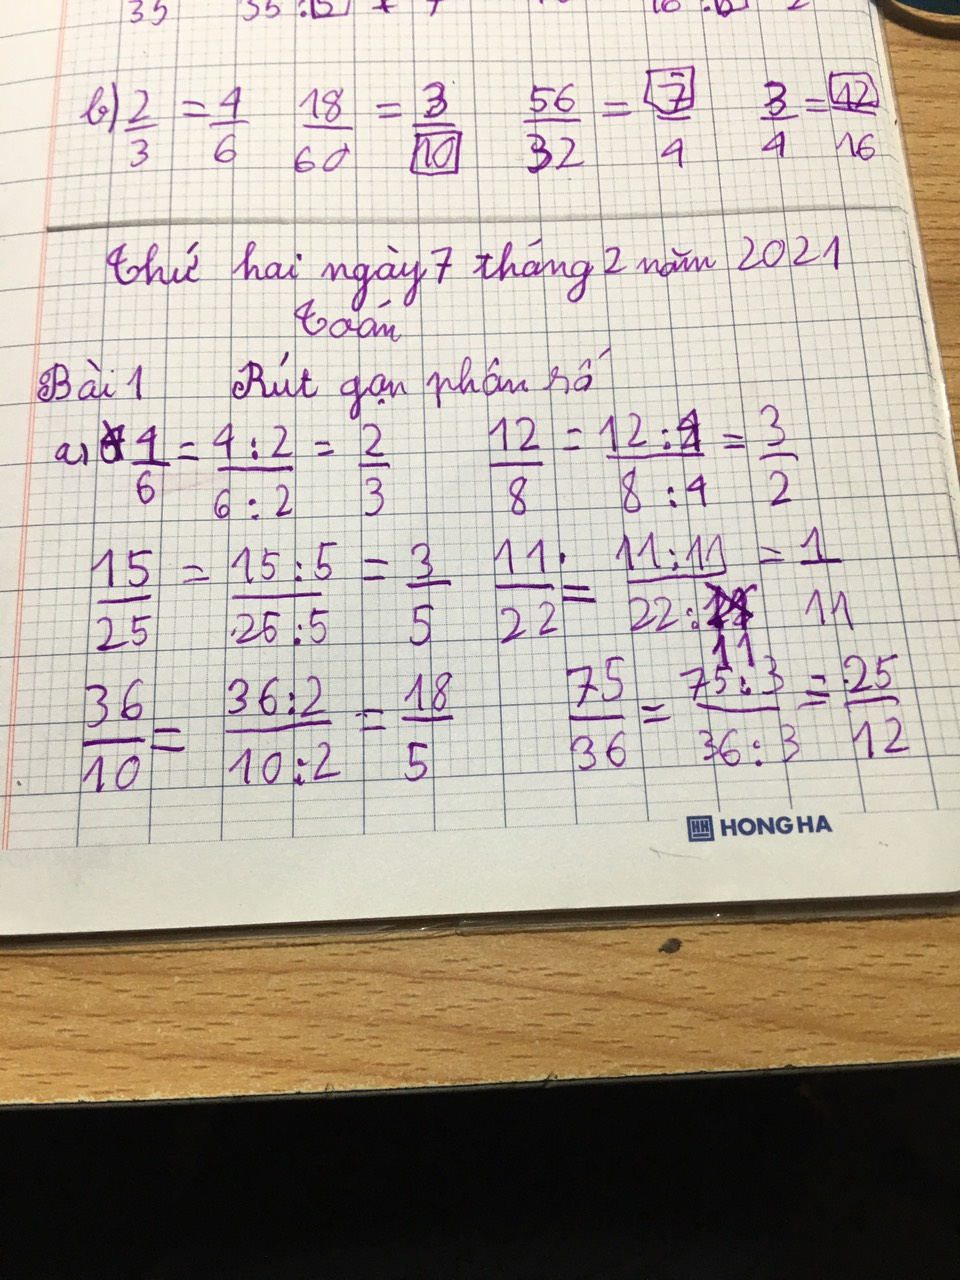 35 35 : 5 7 16 : 2
b) 2/3 = 4/6 18/60 = 3/10 56/32 = 7/4 3/4 = 12/16
Thứ hai ngày 7 tháng 2 năm 2021
Toán
Bài 1 Rút gọn phân số
a) 4/6 = 4:2/6:2 = 2/3 12/8 = 12:4/8:4 = 3/2
15/25 = 15:5/25:5 = 3/5 11/22 = 11:11/22:11 = 1/11
36/10 = 36:2/10:2 = 18/5 75/36 = 75:3/36:3 = 25/12
HH HONG HA